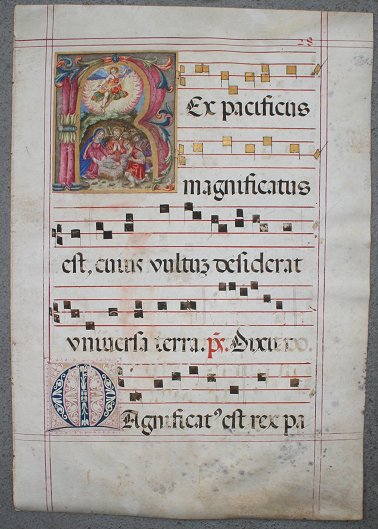 28
REx pacificus
magnificatus
est, cuius vultuȝ desiderat
vniuersa terra. ps. Dixit
MAgnificatꝰ est rex pa